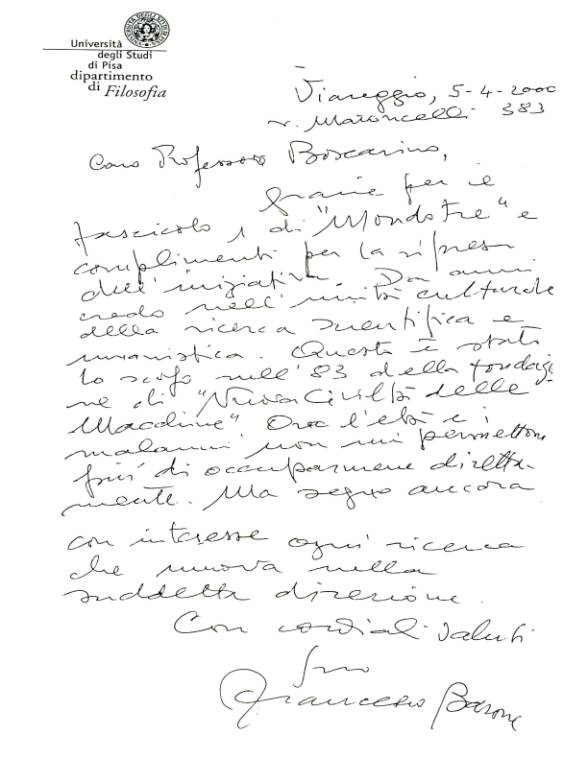 Università
degli Studi
di Pisa
dipartimento
di Filosofia
Viareggio, 5-4-2000
v. Maroncelli 383
Caro Professore Boscarino,
grazie per il
fascicolo 1 di "Mondotre" e
complimenti per la ripresa
dell'iniziativa. Da anni
credo nell'unità culturale
della ricerca scientifica e
umanistica. Questo è stato
lo scopo nell'83 della fondazio
ne di "Nuova Civiltà delle
Macchine" Ora l'età e i
malanni non mi permettono
più di occuparmene diretta-
mente. Ma seguo ancora
con interesse ogni ricerca
che muova nella
suddetta direzione.
Con cordiali saluti
Suo
Francesco Barone